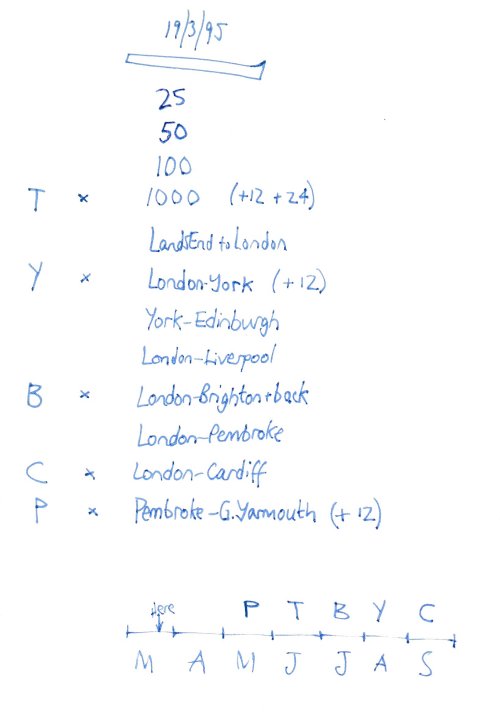 19/3/95
25
50
100
T × 1000 (+12 +24)
LandsEnd to London
Y × London-York (+12)
York-Edinburgh
London-Liverpool
B × London-Brighton+back
London-Pembroke
C × London-Cardiff
P × Pembroke-G.Yarmouth (+12)
Here P T B Y C
M A M J J A S